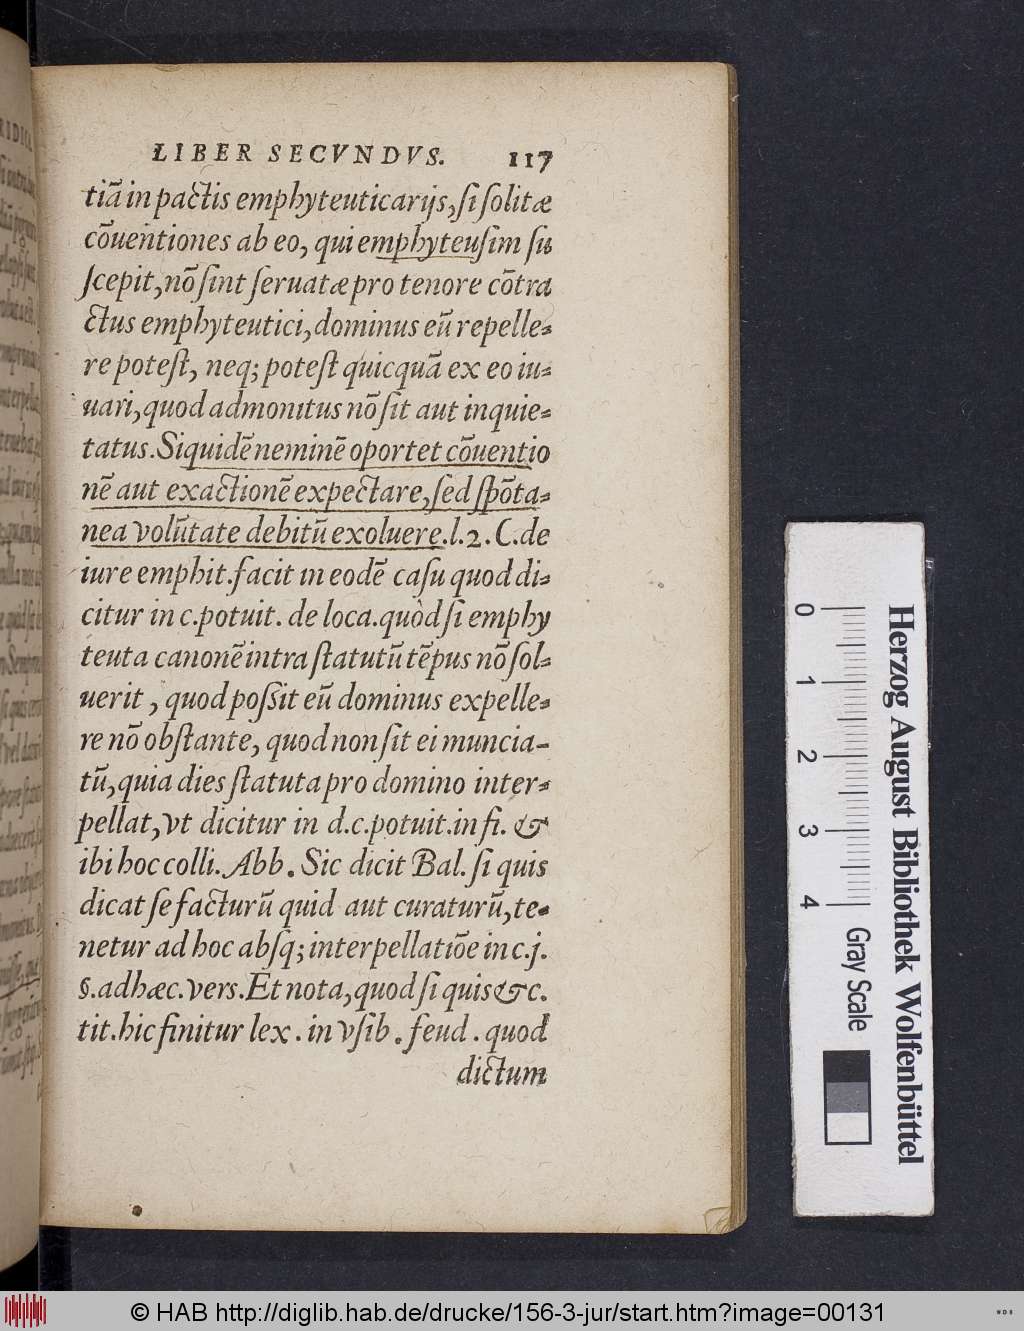 LIBER SECVNDVS. 117
tiā in pactis emphyteuticarijs, si solitæ
cōuentiones ab eo, qui emphyteusim su
scepit, nō sint seruatæ pro tenore cōtra
ctus emphyteutici, dominus eū repelle-
re potest, neq; potest quicquā ex eo iu-
uari, quod admonitus nō sit aut inquie-
tatus. Siquidē neminē oportet cōuentio
nē aut exactionē expectare, sed spōta-
nea volūtate debitū exoluere. l. 2. C. de
iure emphit. facit in eodē casu quod di-
citur in c. potuit. de loca. quòd si emphy
teuta canonē intra statutū tēpus nō sol-
uerit, quod possit eū dominus expelle-
re nō obstante, quod non sit ei muncia-
tū, quia dies statuta pro domino inter-
pellat, vt dicitur in d. c. potuit. in fi. &
ibi hoc colli. Abb. Sic dicit Bal. si quis
dicat se facturū quid aut curaturū, te-
netur ad hoc absq; interpellatiōe in c. j.
§. adhæc. vers. Et nota, quod si quis &c.
tit. hic finitur lex. in vsib. feud. quod
dictum
Herzog August Bibliothek Wolfenbüttel
0 1 2 3 4 Gray Scale
© HAB http://diglib.hab.de/drucke/156-3-jur/start.htm?image=00131